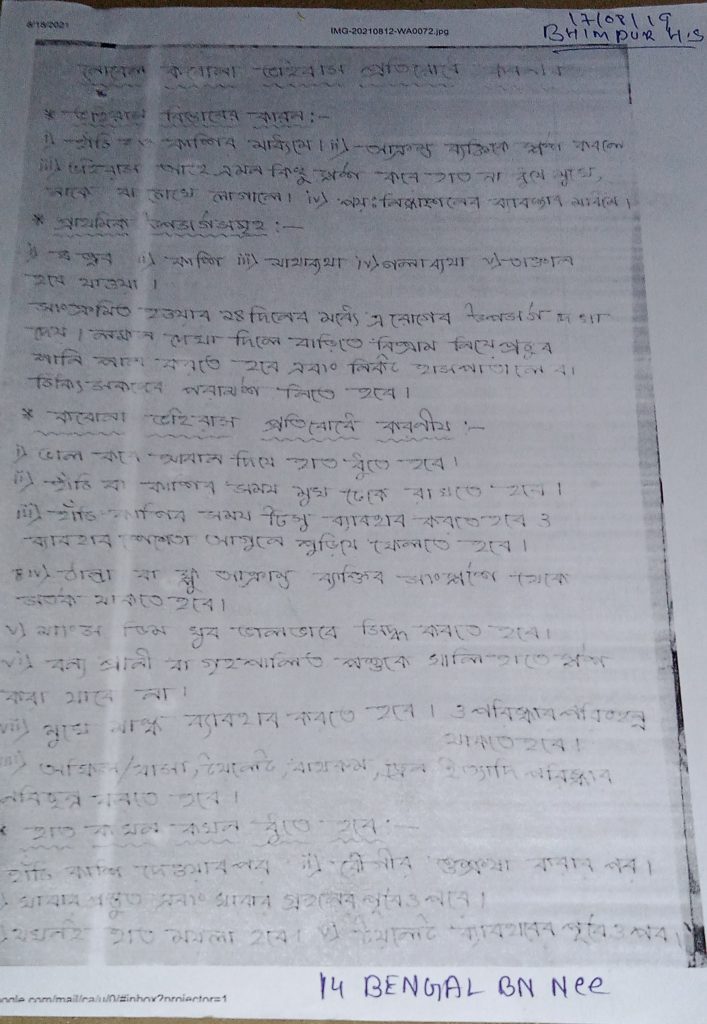 8/18/2021
IMG-20210812-WA0072.jpg
17/08/19
BHIMPUR H.S
নোবেল করোনা ভাইরাস প্রতিরোধে করনীয়
* ভাইরাস বিস্তারের কারন :-
i) হাঁচি কাশির মাধ্যমে। ii) আক্রান্ত ব্যক্তিকে স্পর্শ করলে
iii) ভাইরাস আছে এমন কিছু স্পর্শ করে হাত না ধুয়ে মুখে,
নাকে বা চোখে লাগালে। iv) পয়ঃনিষ্কাশনের ব্যবস্থার মাধ্যমে।
* প্রাথমিক উপসর্গসমূহ :-
i) জ্বর ii) কাশি iii) মাথাব্যথা iv) গলাব্যথা v)
হয়ে যাওয়া।
সংক্রামিত হওয়ার ১৪ দিনের মধ্যে এ রোগের উপসর্গ দেখা
দেয়। লক্ষন দেখা দিলে বাড়িতে বিশ্রাম নিয়ে প্রচুর
পানি পান করতে হবে এবং নিকট হাসপাতালে বা
চিকিৎসকের পরামর্শ নিতে হবে।
* করোনা ভাইরাস প্রতিরোধে করণীয় :-
i) ভাল করে সাবান দিয়ে হাত ধুতে হবে।
ii) হাঁচি বা কাশির সময় মুখ ঢেকে রাখতে হবে।
iii) হাঁচি কাশির সময় টিসু ব্যবহার করতে হবে ও
ব্যবহার শেষে তা আগুনে পুড়িয়ে ফেলতে হবে।
iv) ঠান্ডা বা ফ্লু আক্রান্ত ব্যক্তির সংস্পর্শে থেকে
সতর্ক থাকতে হবে।
v) মাংস ডিম খুব ভালভাবে সিদ্ধ করতে হবে।
vi) বন্য প্রানী বা গৃহপালিত পশুকে খালি হাতে স্পর্শ
করা যাবে না।
vii) মুখে মাস্ক ব্যবহার করতে হবে। ও পরিষ্কার পরিচ্ছন্ন
থাকতে হবে।
অফিস/বাসা, টয়লেট, বাথরুম, ইত্যাদি পরিষ্কার
পরিচ্ছন্ন করতে হবে।
* হাত কখন কখন ধুতে হবে :-
হাঁচি কাশি দেওয়ার পর ii) রোগীর শুশ্রুষা করার পর।
খাবার প্রস্তুত এবং খাবার গ্রহনের পূর্বে ও পরে।
যখনই হাত ময়লা হবে। v) টয়লেট ব্যবহারের পূর্বে ও পর।
14 BENGAL BN Nee
ogle.com/mail/ca/u/0/#inbox?projector=1